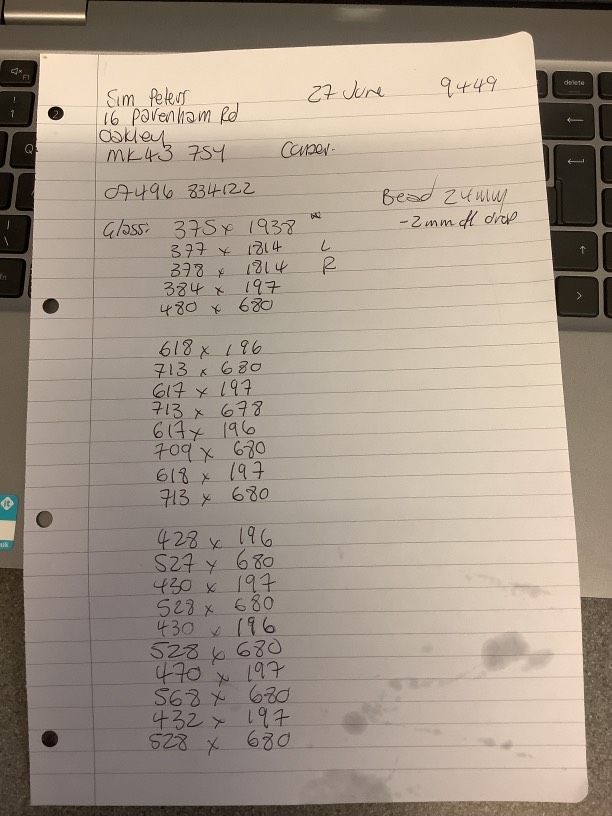 27 June 9449
Sim Peters
16 Pavenham Rd
Oakley
MK43 7SY
07496 834122
Bead 24mm
-2mm drop
Glass: 375 x 1938
377 x 1814 L
378 x 1814 R
384 x 197
480 x 680
618 x 196
713 x 680
617 x 197
713 x 678
617 x 196
709 x 680
618 x 197
713 x 680
428 x 196
527 x 680
430 x 197
528 x 680
430 x 196
528 x 680
470 x 197
568 x 680
432 x 197
528 x 680
delete